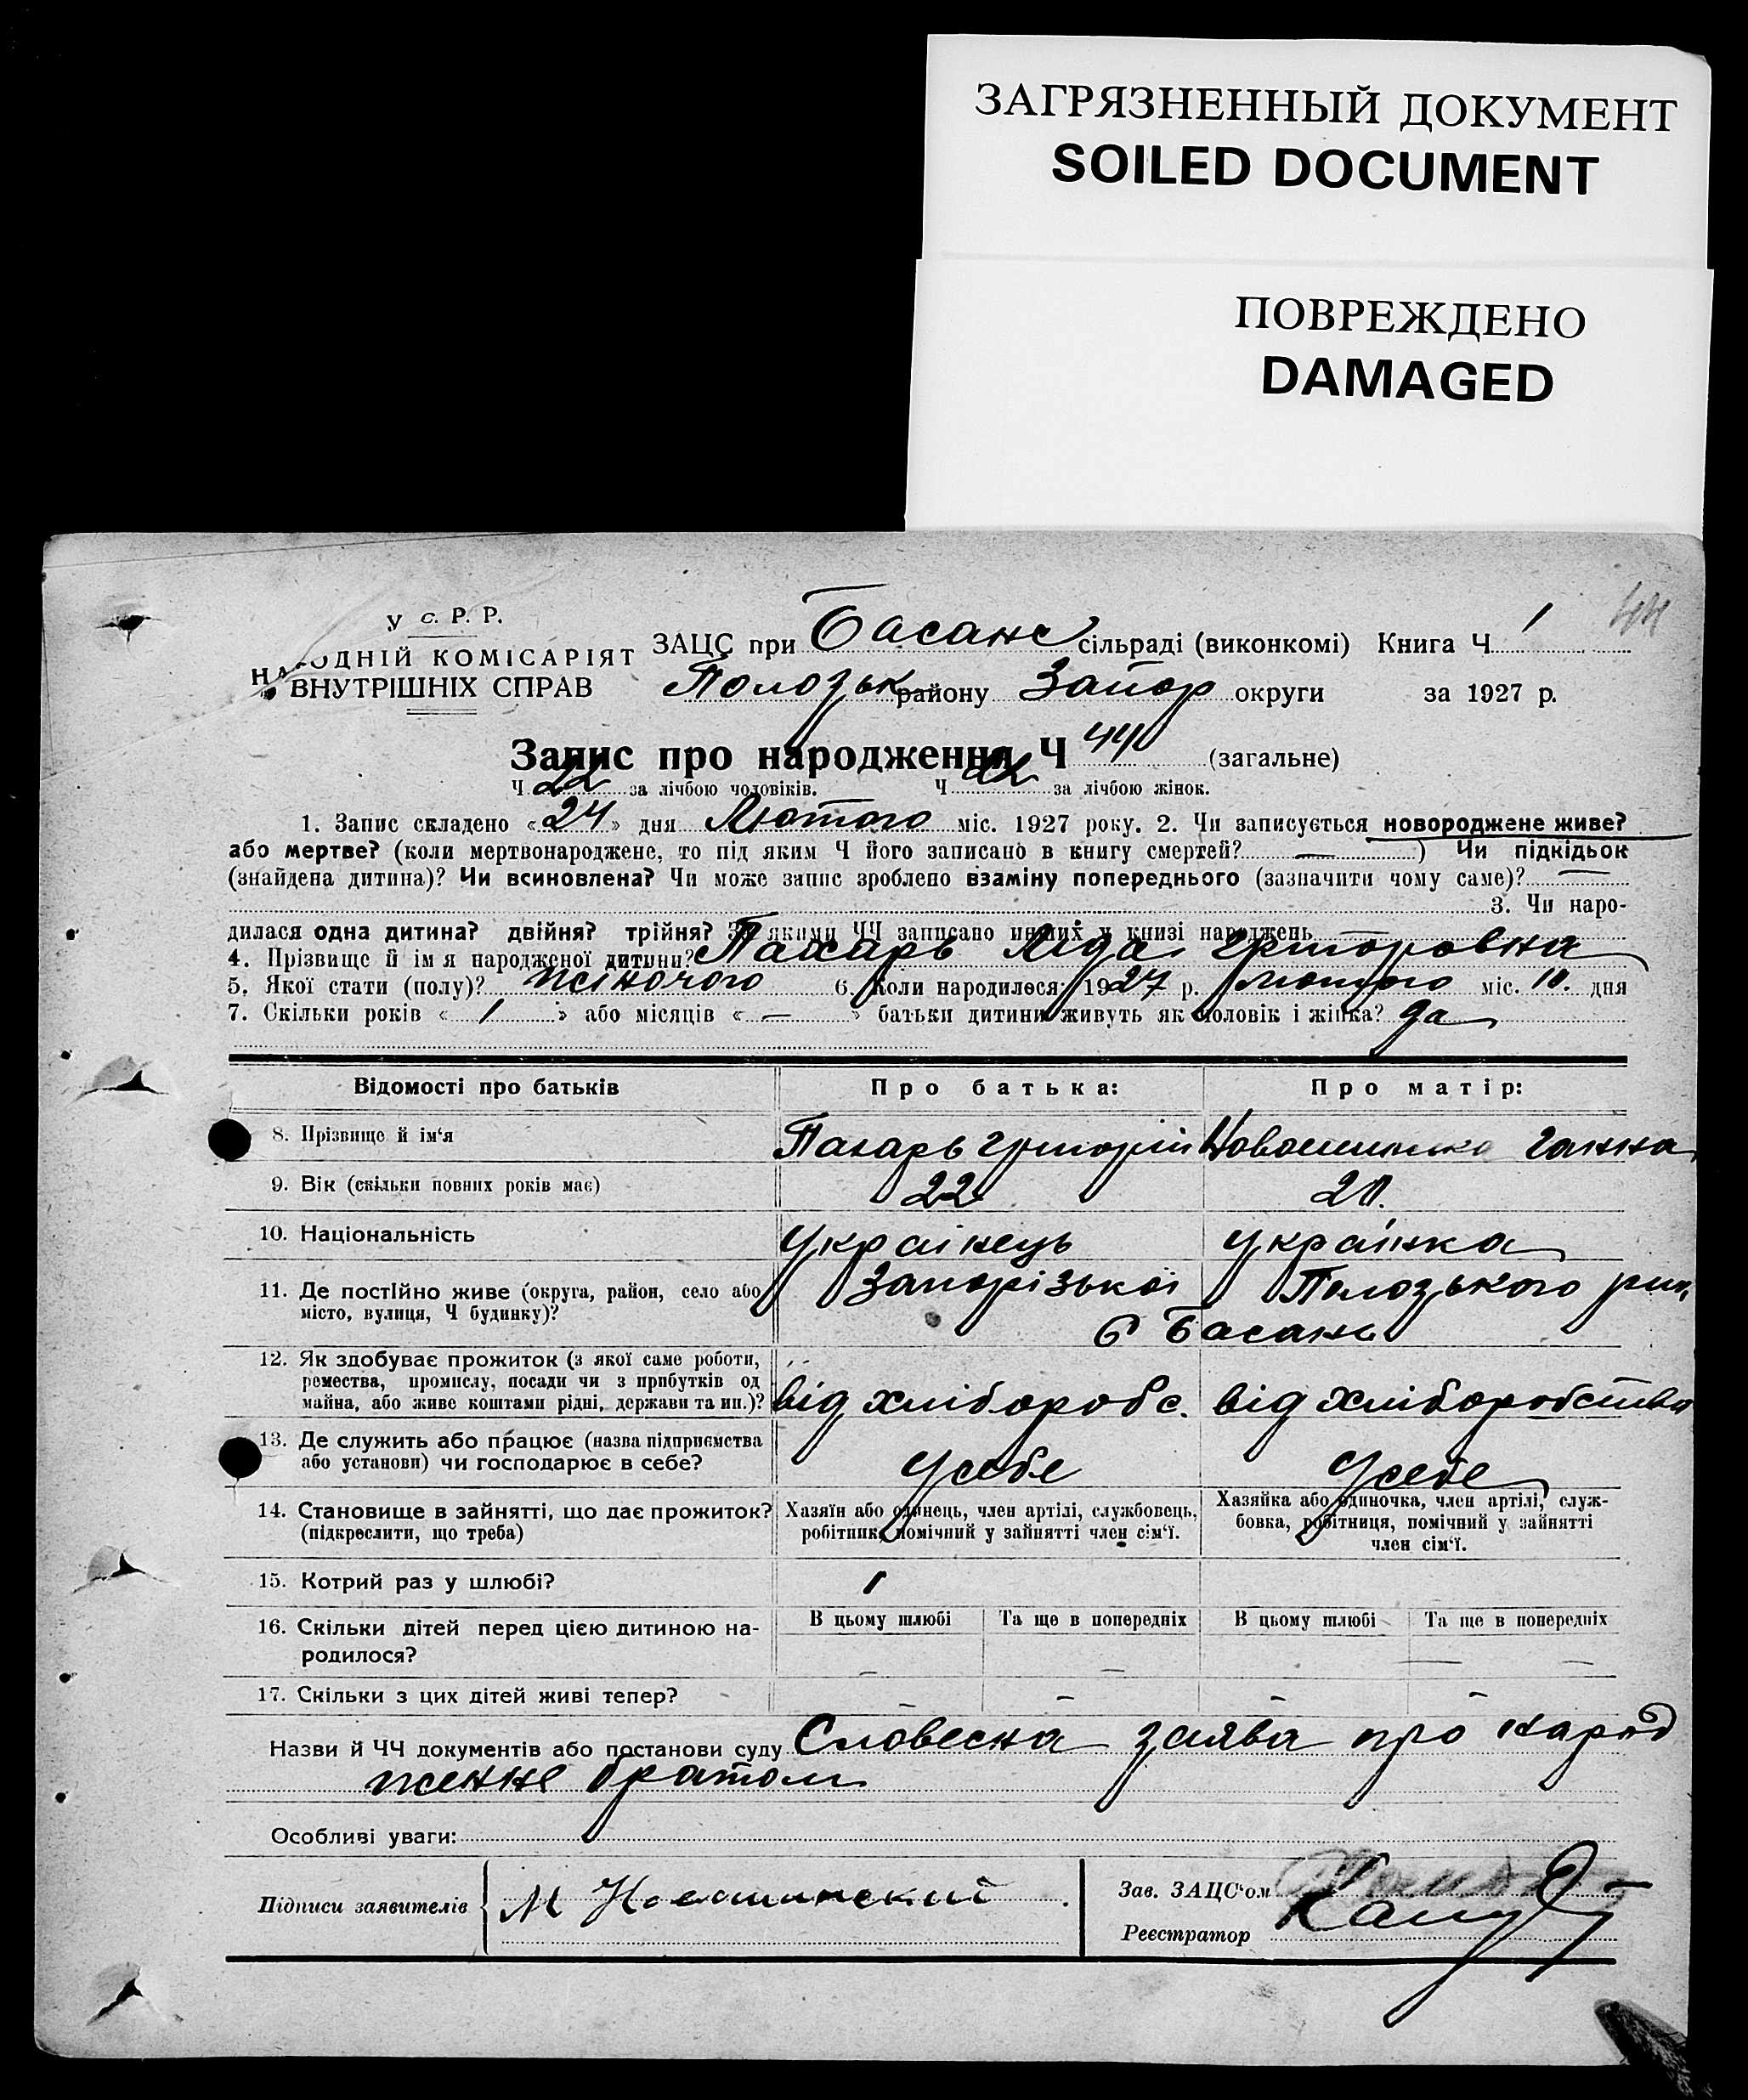 ЗАГРЯЗНЕННЫЙ ДОКУМЕНТ
SOILED DOCUMENT
ПОВРЕЖДЕНО
DAMAGED
44
У С. Р. Р.
НАРОДНІЙ КОМІСАРІЯТ
ВНУТРІШНІХ СПРАВ
ЗАЦС при Басанс сільраді (виконкомі) Книга Ч 1
Полозьк району Запор округи за 1927 р.
Запис про народження Ч 44 (загальне)
Ч 22 за лічбою чоловіків. Ч 22 за лічбою жінок.
1. Запис складено «24» дня Лютого міс. 1927 року. 2. Чи записується новороджене живе?
або мертве? (коли мертвонароджене, то під яким Ч його записано в книгу смертей? —) Чи підкідьок
(знайдена дитина)? Чи всиновлена? Чи може запис зроблено взаміну попереднього (зазначити чому саме)? —
3. Чи наро-
дилася одна дитина? двійня? трійня? За якими ЧЧ записано инших у книзі народжень
4. Прізвище й ім я народженої дитини? Пахарь Ліда Григоровна
5. Якої стати (полу)? жіночого 6. Коли народилося: 1927 р. лютого міс. 10. дня
7. Скільки років «1» або місяців «—» батьки дитини живуть як чоловік і жінка? да
Відомості про батьків Про батька: Про матір:
8. Прізвище й ім‘я Пахарь Григорій Ганна
9. Вік (скільки повних років має) 22 20.
10. Національність Українець українка
11. Де постійно живе (округа, район, село або Запорізької Полозького рай,
місто, вулиця, Ч будинку)? с Басань
12. Як здобуває прожиток (з якої саме роботи,
ремества, промислу, посади чи з прибутків од
майна, або живе коштами рідні, держави та ин.)? від хліборобс. від хліборобства
13. Де служить або працює (назва підприємства
або установи) чи господарює в себе? Усебе Усебе
14. Становище в зайнятті, що дає прожиток? Хазяїн або одинець, член артілі, службовець, Хазяйка або одиночка, член артілі, служ-
(підкреслити, що треба) робітник, помічний у зайнятті член сім‘ї. бовка, робітниця, помічний у зайнятті
член сім‘ї.
15. Котрий раз у шлюбі? 1
16. Скільки дітей перед цією дитиною на- В цьому шлюбі Та ще в попередніх В цьому шлюбі Та ще в попередніх
родилося? — — — —
17. Скільки з цих дітей живі тепер? — — — —
Назви й ЧЧ документів або постанови суду Словесна заява про народ
женне братом
Особливі уваги:
Підписи заявителів М Зав. ЗАЦС‘ом
Реєстратор